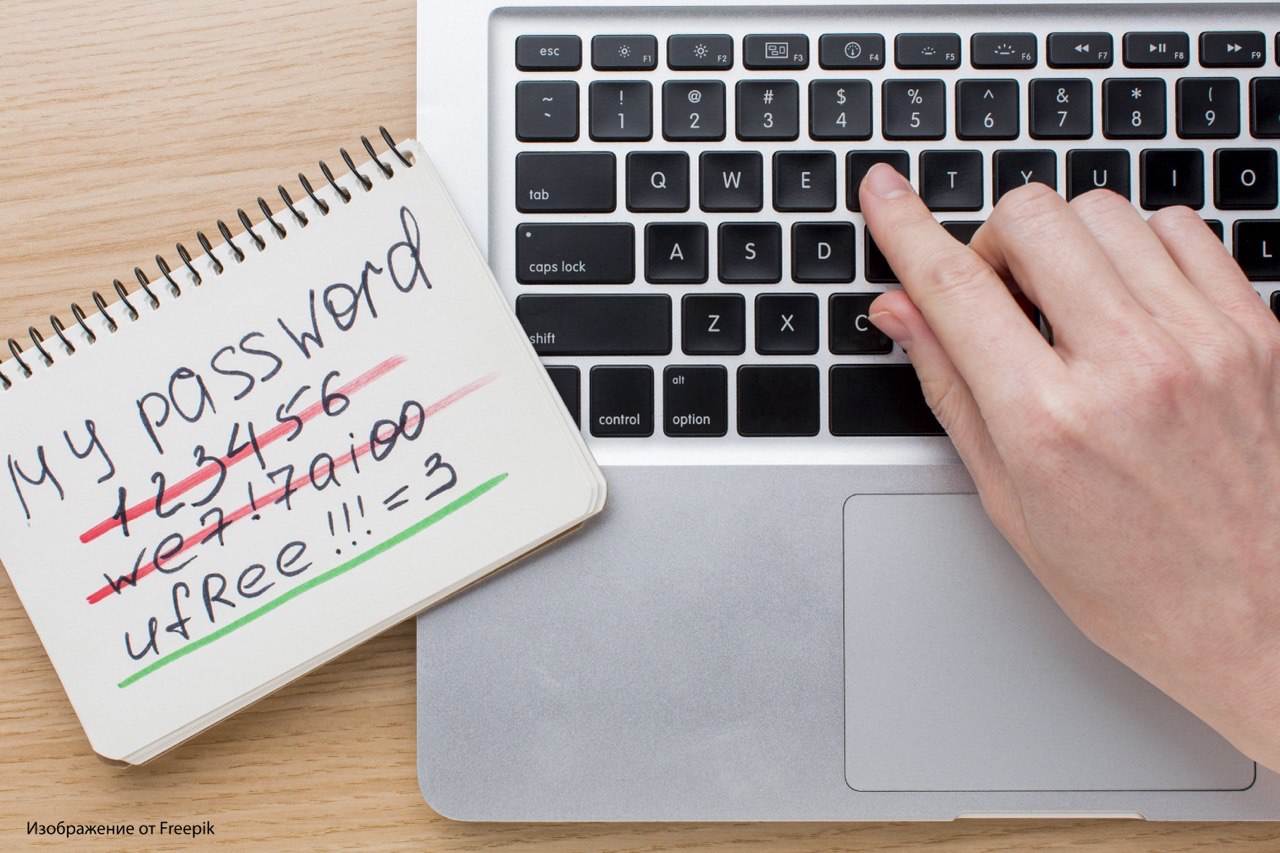 My password
123456
we7!7aioo
ufRee!!!=3
esc F1 F2 F3 F4 F5 F6 F7 F8 F9
~ ! @ # $ % ^ & * (
` 1 2 3 4 5 6 7 8 9
tab Q W E T Y U I O
caps lock A S D L
shift Z X C
alt
control option
Изображение от Freepik